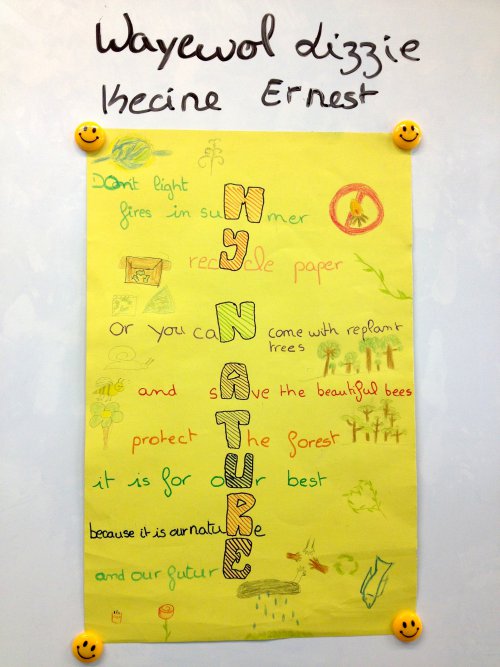 Wayewol Lizzie
Kecine Ernest
Don't light
fires in suMmer
recYcle paper
Or you caN come with replant
trees
and sAve the beautiful bees
protect The forest
it is for oUr best
because it is our natuRe
and our futurE